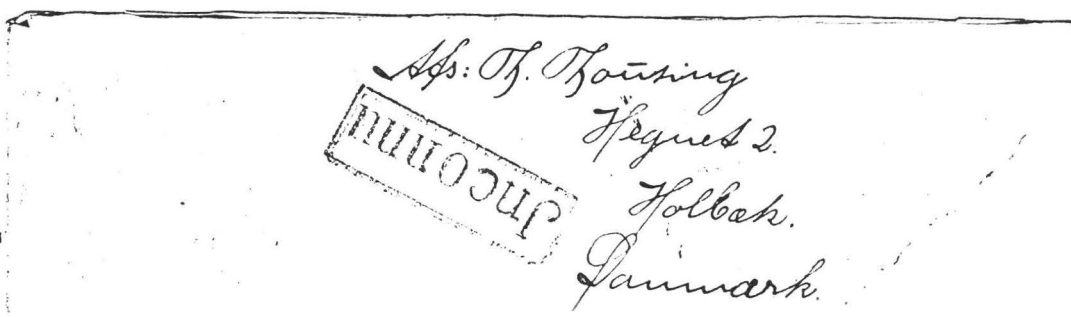 Afs: Th. Thoŭsing
Hegnet 2.
Holbæk.
Danmark.
Jnconnu